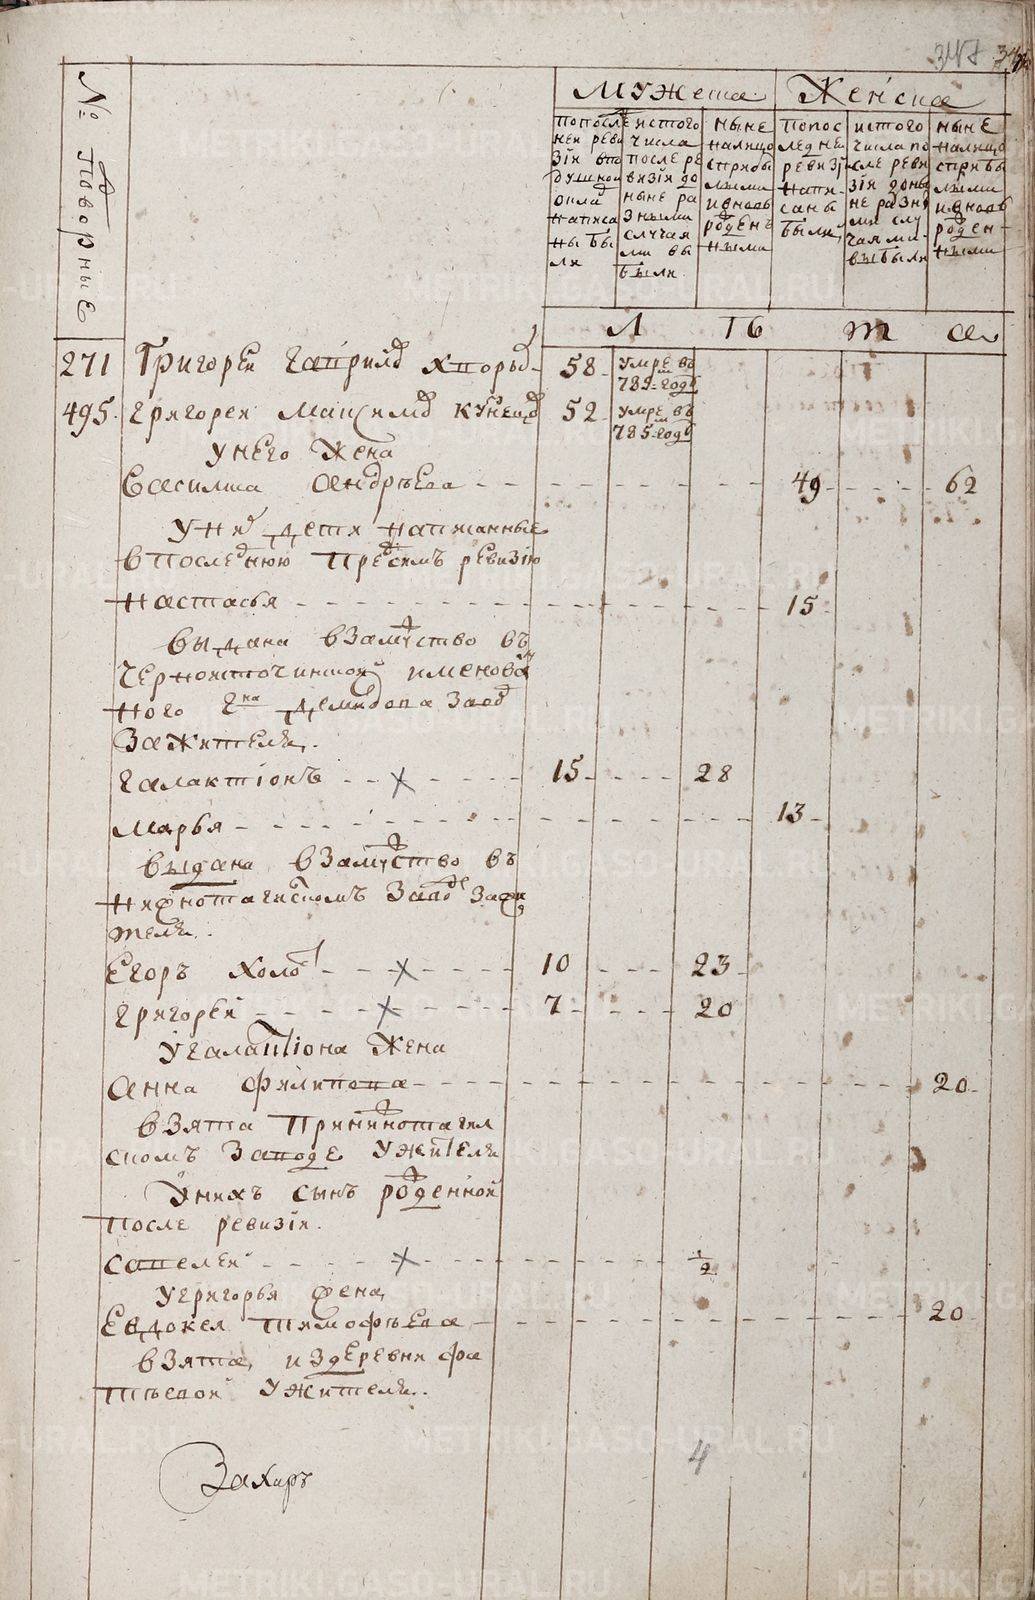 347
№ Дворные
Мужеска
Женска
По последней ревизіи в подушной оклад написаны были
ис того числа после ревизіи до ныне разными случаями выбыли
ныне на лицо с прибылыми и вновь рожденными
По последней ревизіи написаны были
ис того числа после ревизіи до ныне разными случаями выбыли
ныне на лицо с прибылыми и вновь рожденными
Л ѣ т а
271 Григорей Гаврилов 58 умре в 789 году
495 Григорей Максимов Кузнецов 52 умре въ 785 году
у него жена
Василиса андрѣева 49 62
у них дети написанные
в последнюю пред симъ ревизію
настасья 15
выдана в замужство въ
черноисточинской именова
ного гна демидова завод
за жителя.
галактіонъ × 15 28
марья 13
выдана в замужство въ
нижнотагилскомъ заводе за жи
теля.
Егоръ холост × 10 23
григорей × 7 20
у галактіона жена
анна филипова 20
взята при нижнотагил
скомъ заводе у жителя
у нихъ сынъ рожденной
после ревизіи.
савелей × 1/2
у григорья жена
Евдокея тимофѣева 20
взята из деревни фа
тѣевой у жителя.
Захаръ
4
METRIKI.GASO-URAL.RU